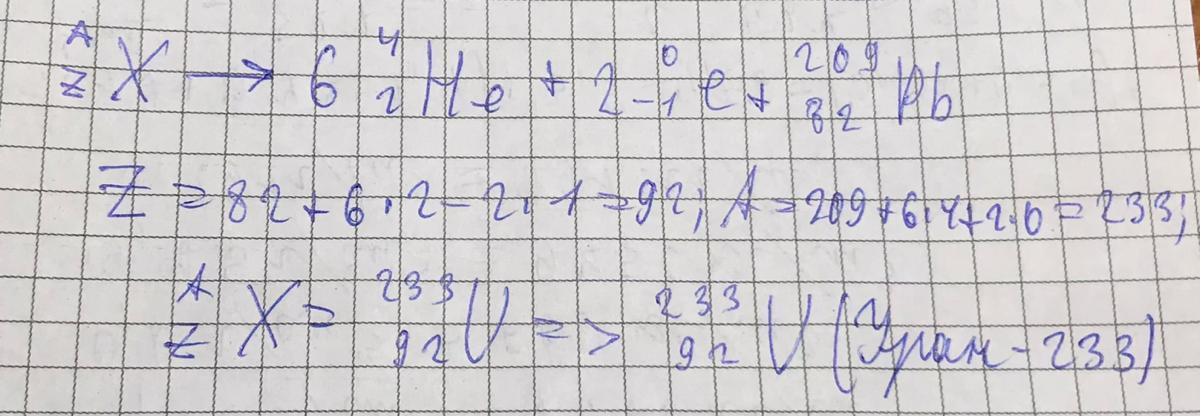 ᴬ_Z X → 6 ⁴₂He + 2 ⁰₋₁e + ²⁰⁹₈₂Pb
Z = 82+6·2-2·1=92; A=209+6·4+2·0=233;
ᴬ_Z X = ²³³₉₂U => ²³³₉₂U (Уран-233)